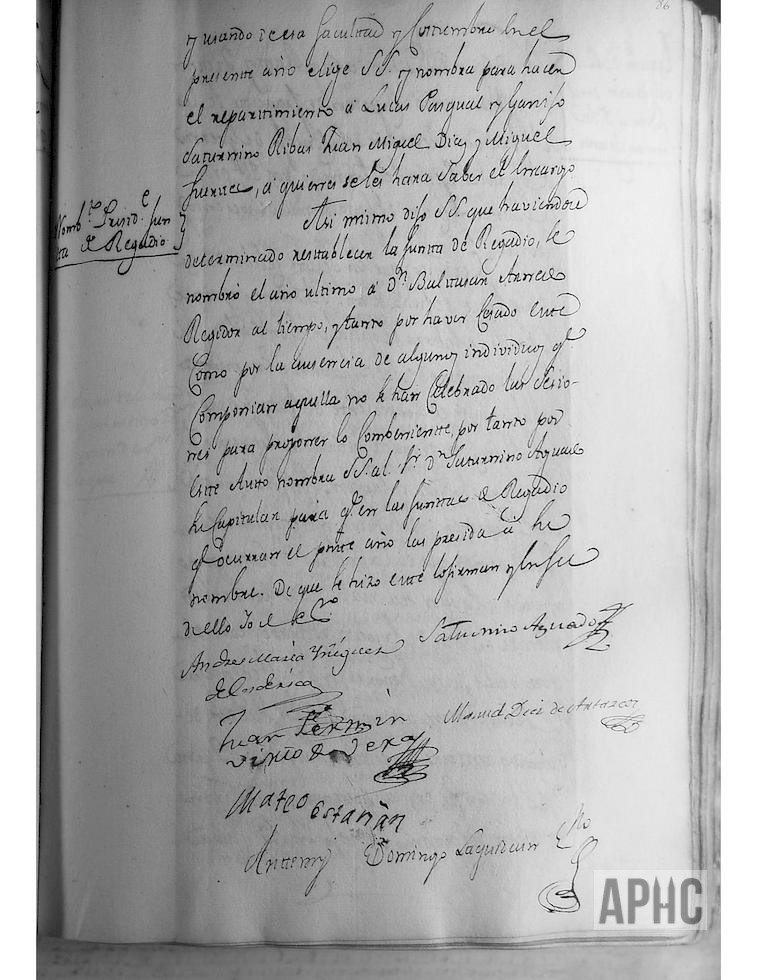 86
y usando de esa facultad y Costumbre en el
presente año elige SS. y nombra para hacer
el repartimiento a Lucas Pasqual y Garijo
Saturnino Ribas Juan Miguel Diaz y Miguel
fuentes, a quienes se les hara saber el Encargo
Nomb.to Presid.e Jun
ta de Regadio
Asi mismo dijo SS. que haviendose
determinado restablecer la Junta de Regadio, se
nombró el año ultimo a Dn Baltasar
Regidor al tiempo, y tanto por haver Cesado este
Como por la ausencia de algunos individuos q.e
Componian aquella no se han Celebrado las Sesio-
nes para proponer lo Combeniente, por tanto por
este Auto nombra SS. al Sr. Dn Saturnino Aguado
su Capitular para q.e en las Juntas de Regadio
q.e ocurran el pnte año las presida a su
nombre. De que se hizo este lo firman y en fee
de ello Yo el Es.no
Andres Maria Yñiguez
Saturnino Aguado
Juan Fermin
Manuel Diez de
de Vera
Mateo
Antemy Domingo Eno
APHC